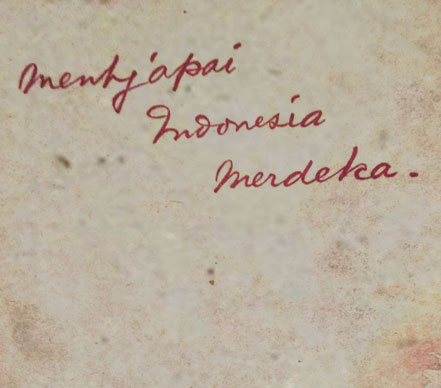 Mentjapai
Indonesia
Merdeka.